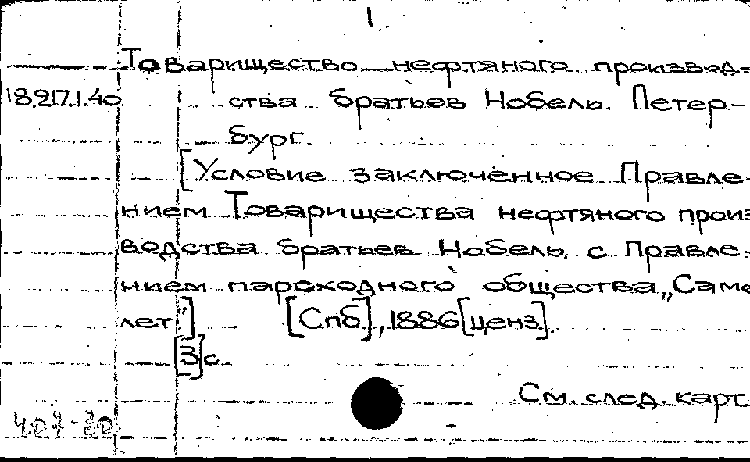 1
Товарищество нефтяного производ-
18.217.1.40 ства братьев Нобель. Петер-
бург.
[Условие заключенное Правле-
нием Товарищества нефтяного произ
водства братьев Нобель, с Правле-
нием пароходного общества „Само
лет"] [Спб], 1886 [ценз].
[3] с.
См. след. карт.
407-20